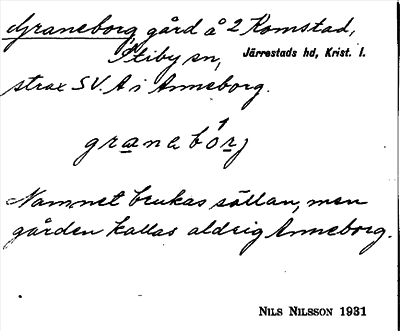 Graneborg gård å 2 Komstad,
Stiby sn, Järrestads hd, Krist. l.
strax SV. A i Anneborg.
granebórj
Namnet brukas sällan, men
gården kallas aldrig Anneborg.
NILS NILSSON 1931